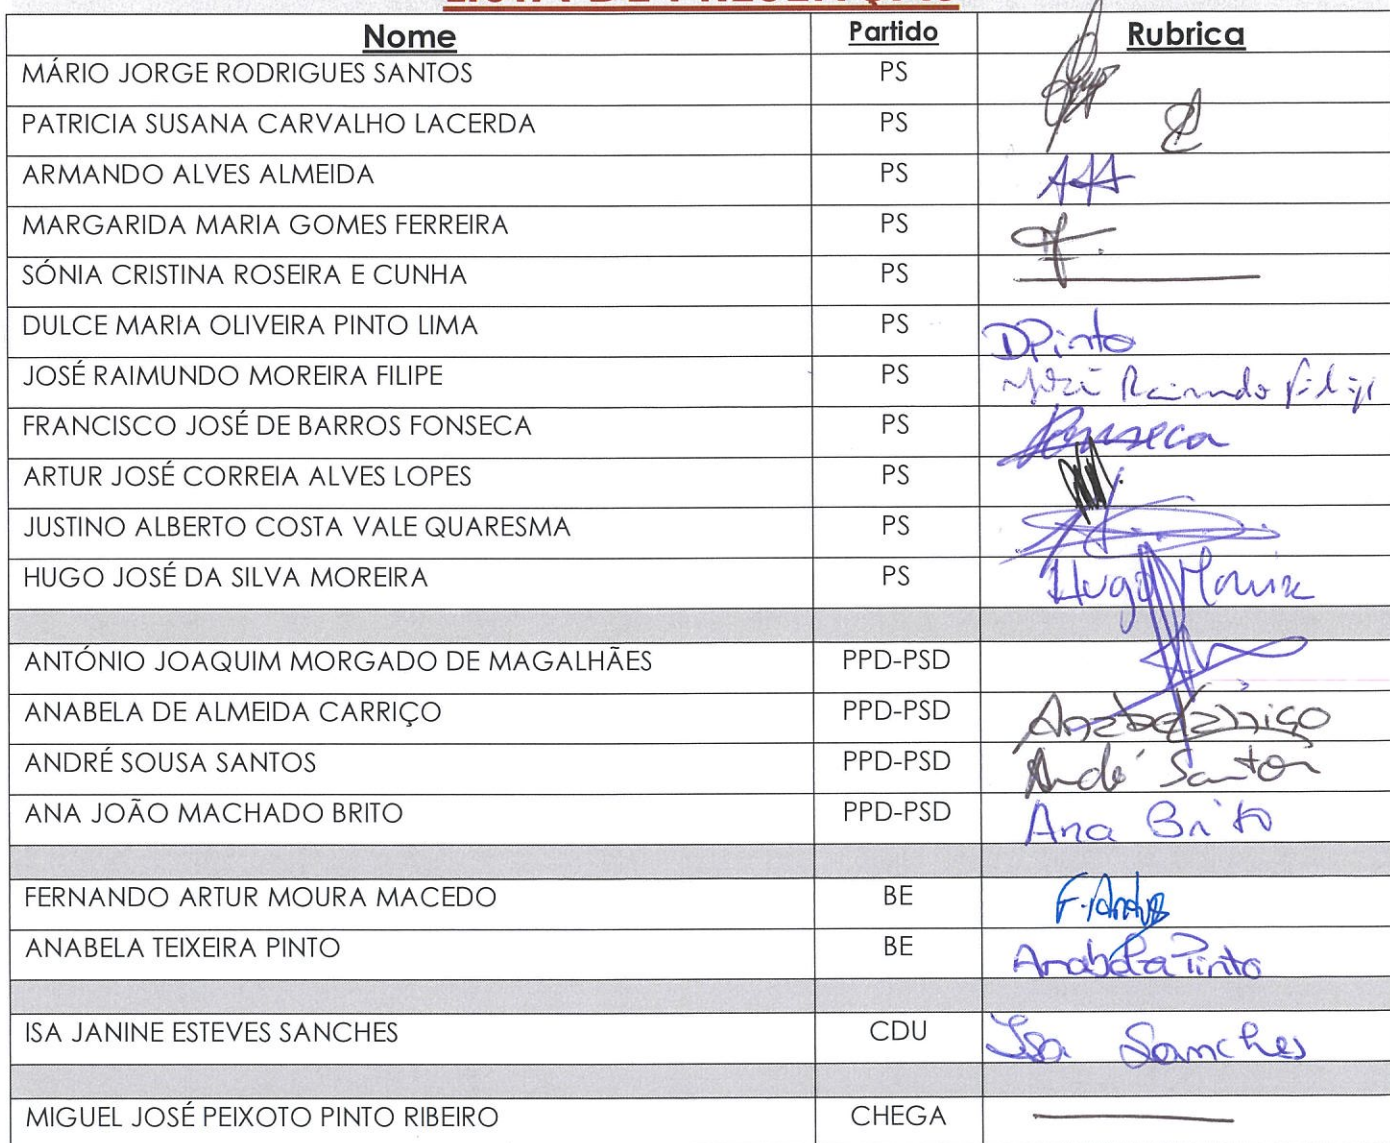 LISTA DE PRESENÇAS
Nome Partido Rubrica
MÁRIO JORGE RODRIGUES SANTOS PS
PATRICIA SUSANA CARVALHO LACERDA PS
ARMANDO ALVES ALMEIDA PS AAA
MARGARIDA MARIA GOMES FERREIRA PS
SÓNIA CRISTINA ROSEIRA E CUNHA PS
DULCE MARIA OLIVEIRA PINTO LIMA PS DPinto
JOSÉ RAIMUNDO MOREIRA FILIPE PS José Raimundo Filipe
FRANCISCO JOSÉ DE BARROS FONSECA PS Fonseca
ARTUR JOSÉ CORREIA ALVES LOPES PS
JUSTINO ALBERTO COSTA VALE QUARESMA PS
HUGO JOSÉ DA SILVA MOREIRA PS Hugo Moreira
ANTÓNIO JOAQUIM MORGADO DE MAGALHÃES PPD-PSD
ANABELA DE ALMEIDA CARRIÇO PPD-PSD Anabela Carriço
ANDRÉ SOUSA SANTOS PPD-PSD André Santos
ANA JOÃO MACHADO BRITO PPD-PSD Ana Brito
FERNANDO ARTUR MOURA MACEDO BE
ANABELA TEIXEIRA PINTO BE Anabela Pinto
ISA JANINE ESTEVES SANCHES CDU Isa Sanches
MIGUEL JOSÉ PEIXOTO PINTO RIBEIRO CHEGA